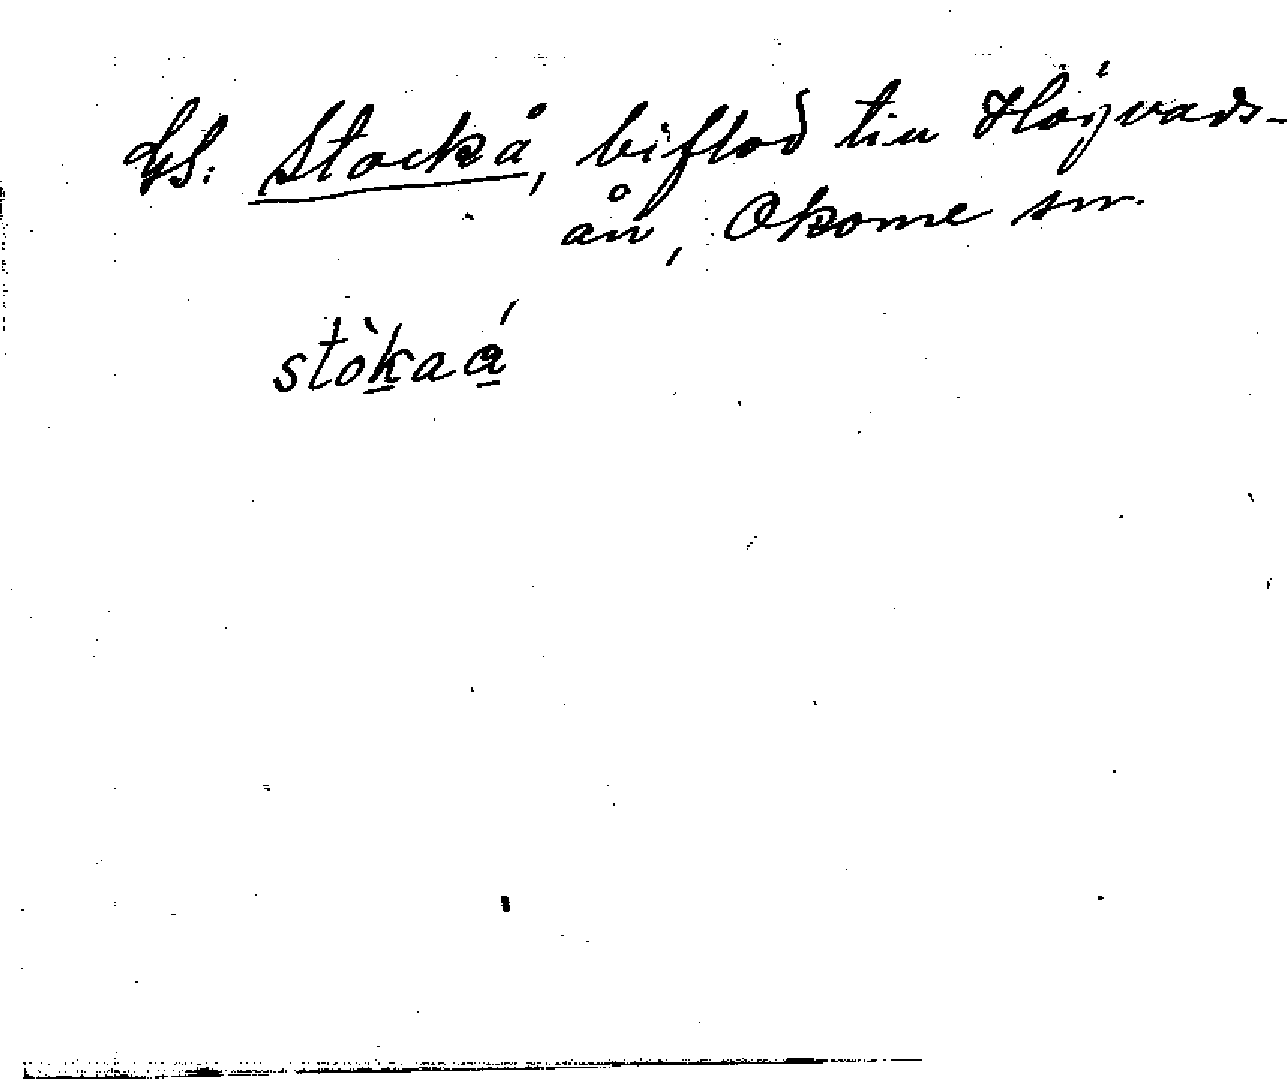 Gs. Stockå, biflod till Högvads-
ån, Okome sn.
stòkaá